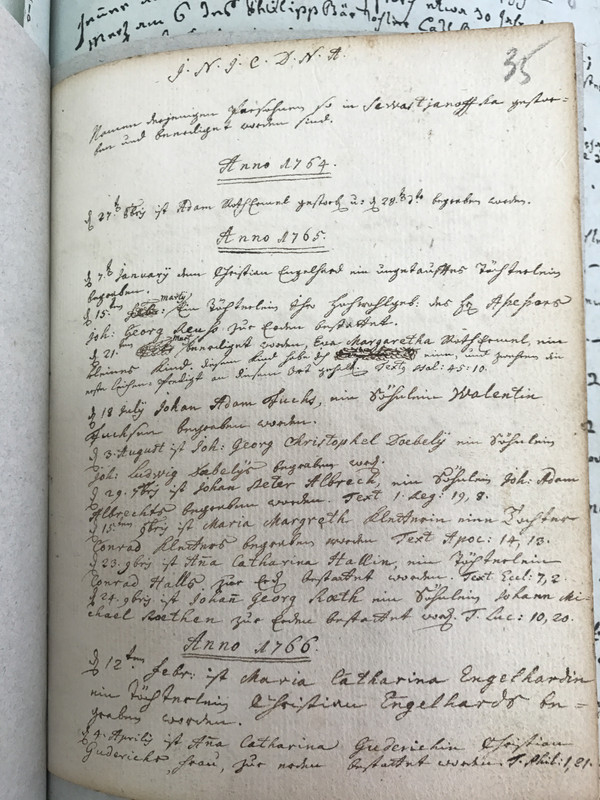 J. N. J. C. D. N. A.
35
Namen derjenigen Persohnen so in Sewastjanoffka gestor-
ben und beerdiget worden sind.
Anno 1764.
d 27t 8brj ist Adam Rothermel gestorb u: d 28t begraben worden.
Anno 1765.
d 7t January dem Christian Engelhard ein ungetaufftes Töchterlein
begraben.
marty
d 15ten ein Töchterlein Ihr Hochwohlgeb. des H Assessors
Joh: Georg Reuss zur Erden bestattet.
d 21ten beerdiget worden, Eva Margaretha Rothermel, ein
kleines Kind. diesem Kind habe ich eine, und zwar die
erste leichen-predigt an diesem Ort gehalt. Text 45: 10.
d 18 July Johan Adam Fuchs, ein Söhnlein Valentin
Fuchsen begraben worden.
d 3 August ist Joh: Georg Christophel Doebely ein Söhnlein
Joh: Ludwig Döbelys begraben word.
d 29. 7brj ist Johan Peter Albrech, ein Söhnlein Joh: Adam
Albrechts begraben worden. Text 1. Reg: 19, 8.
d 15ten 9brj ist Maria Margreth eine Tochter
Conrad begraben worden Text Apoc: 14, 13.
d 23. 9brj ist Aña Catharina Hallin, ein Töchterlein
Conrad Halls zur Erd bestattet worden. Text Eccl: 7, 2.
d 24. 9brj ist Johañ Georg Roeth ein Söhnlein Johann Mi-
chael Roethen zur Erden bestattet word. T. Luc: 10, 20.
Anno 1766.
d 12ten Febr: ist Maria Catharina Engelhardin
ein Töchterlein Christian Engelhards be-
graben worden.
d 4. Aprilis ist Aña Catharina Guderichin Christian
Guderichs frau, zur erden bestattet worden. T. Phil: 1, 21.